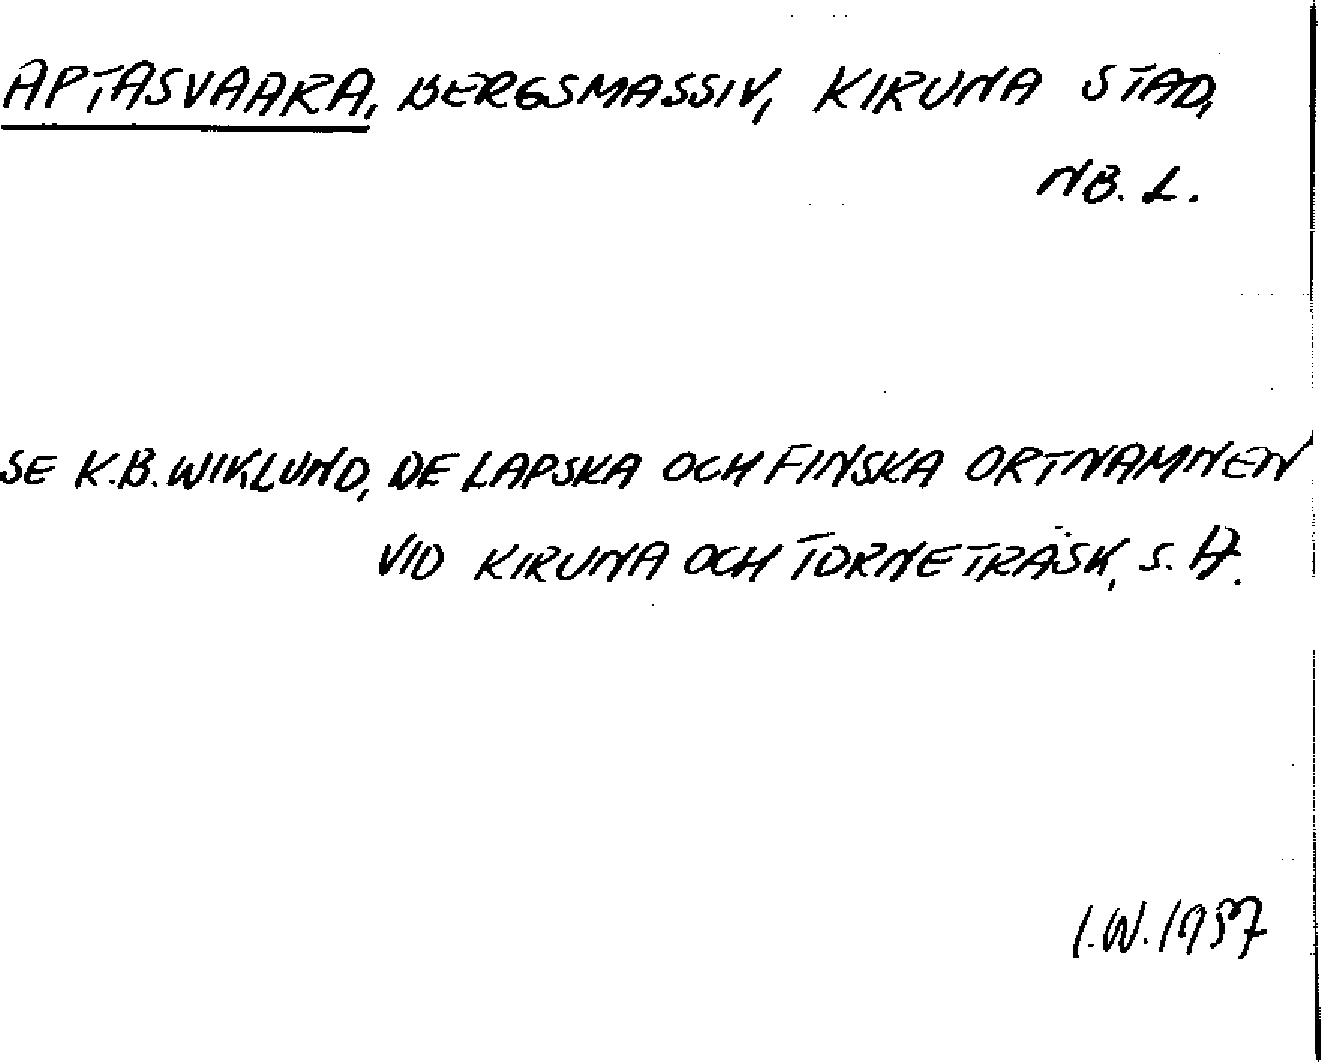 APTASVAARA, BERGSMASSIV, KIRUNA STAD,
NB. L.
SE K.B. WIKLUND, DE LAPSKA OCH FINSKA ORTNAMNEN
VID KIRUNA OCH TORNETRÄSK, S.
I.W. 1957